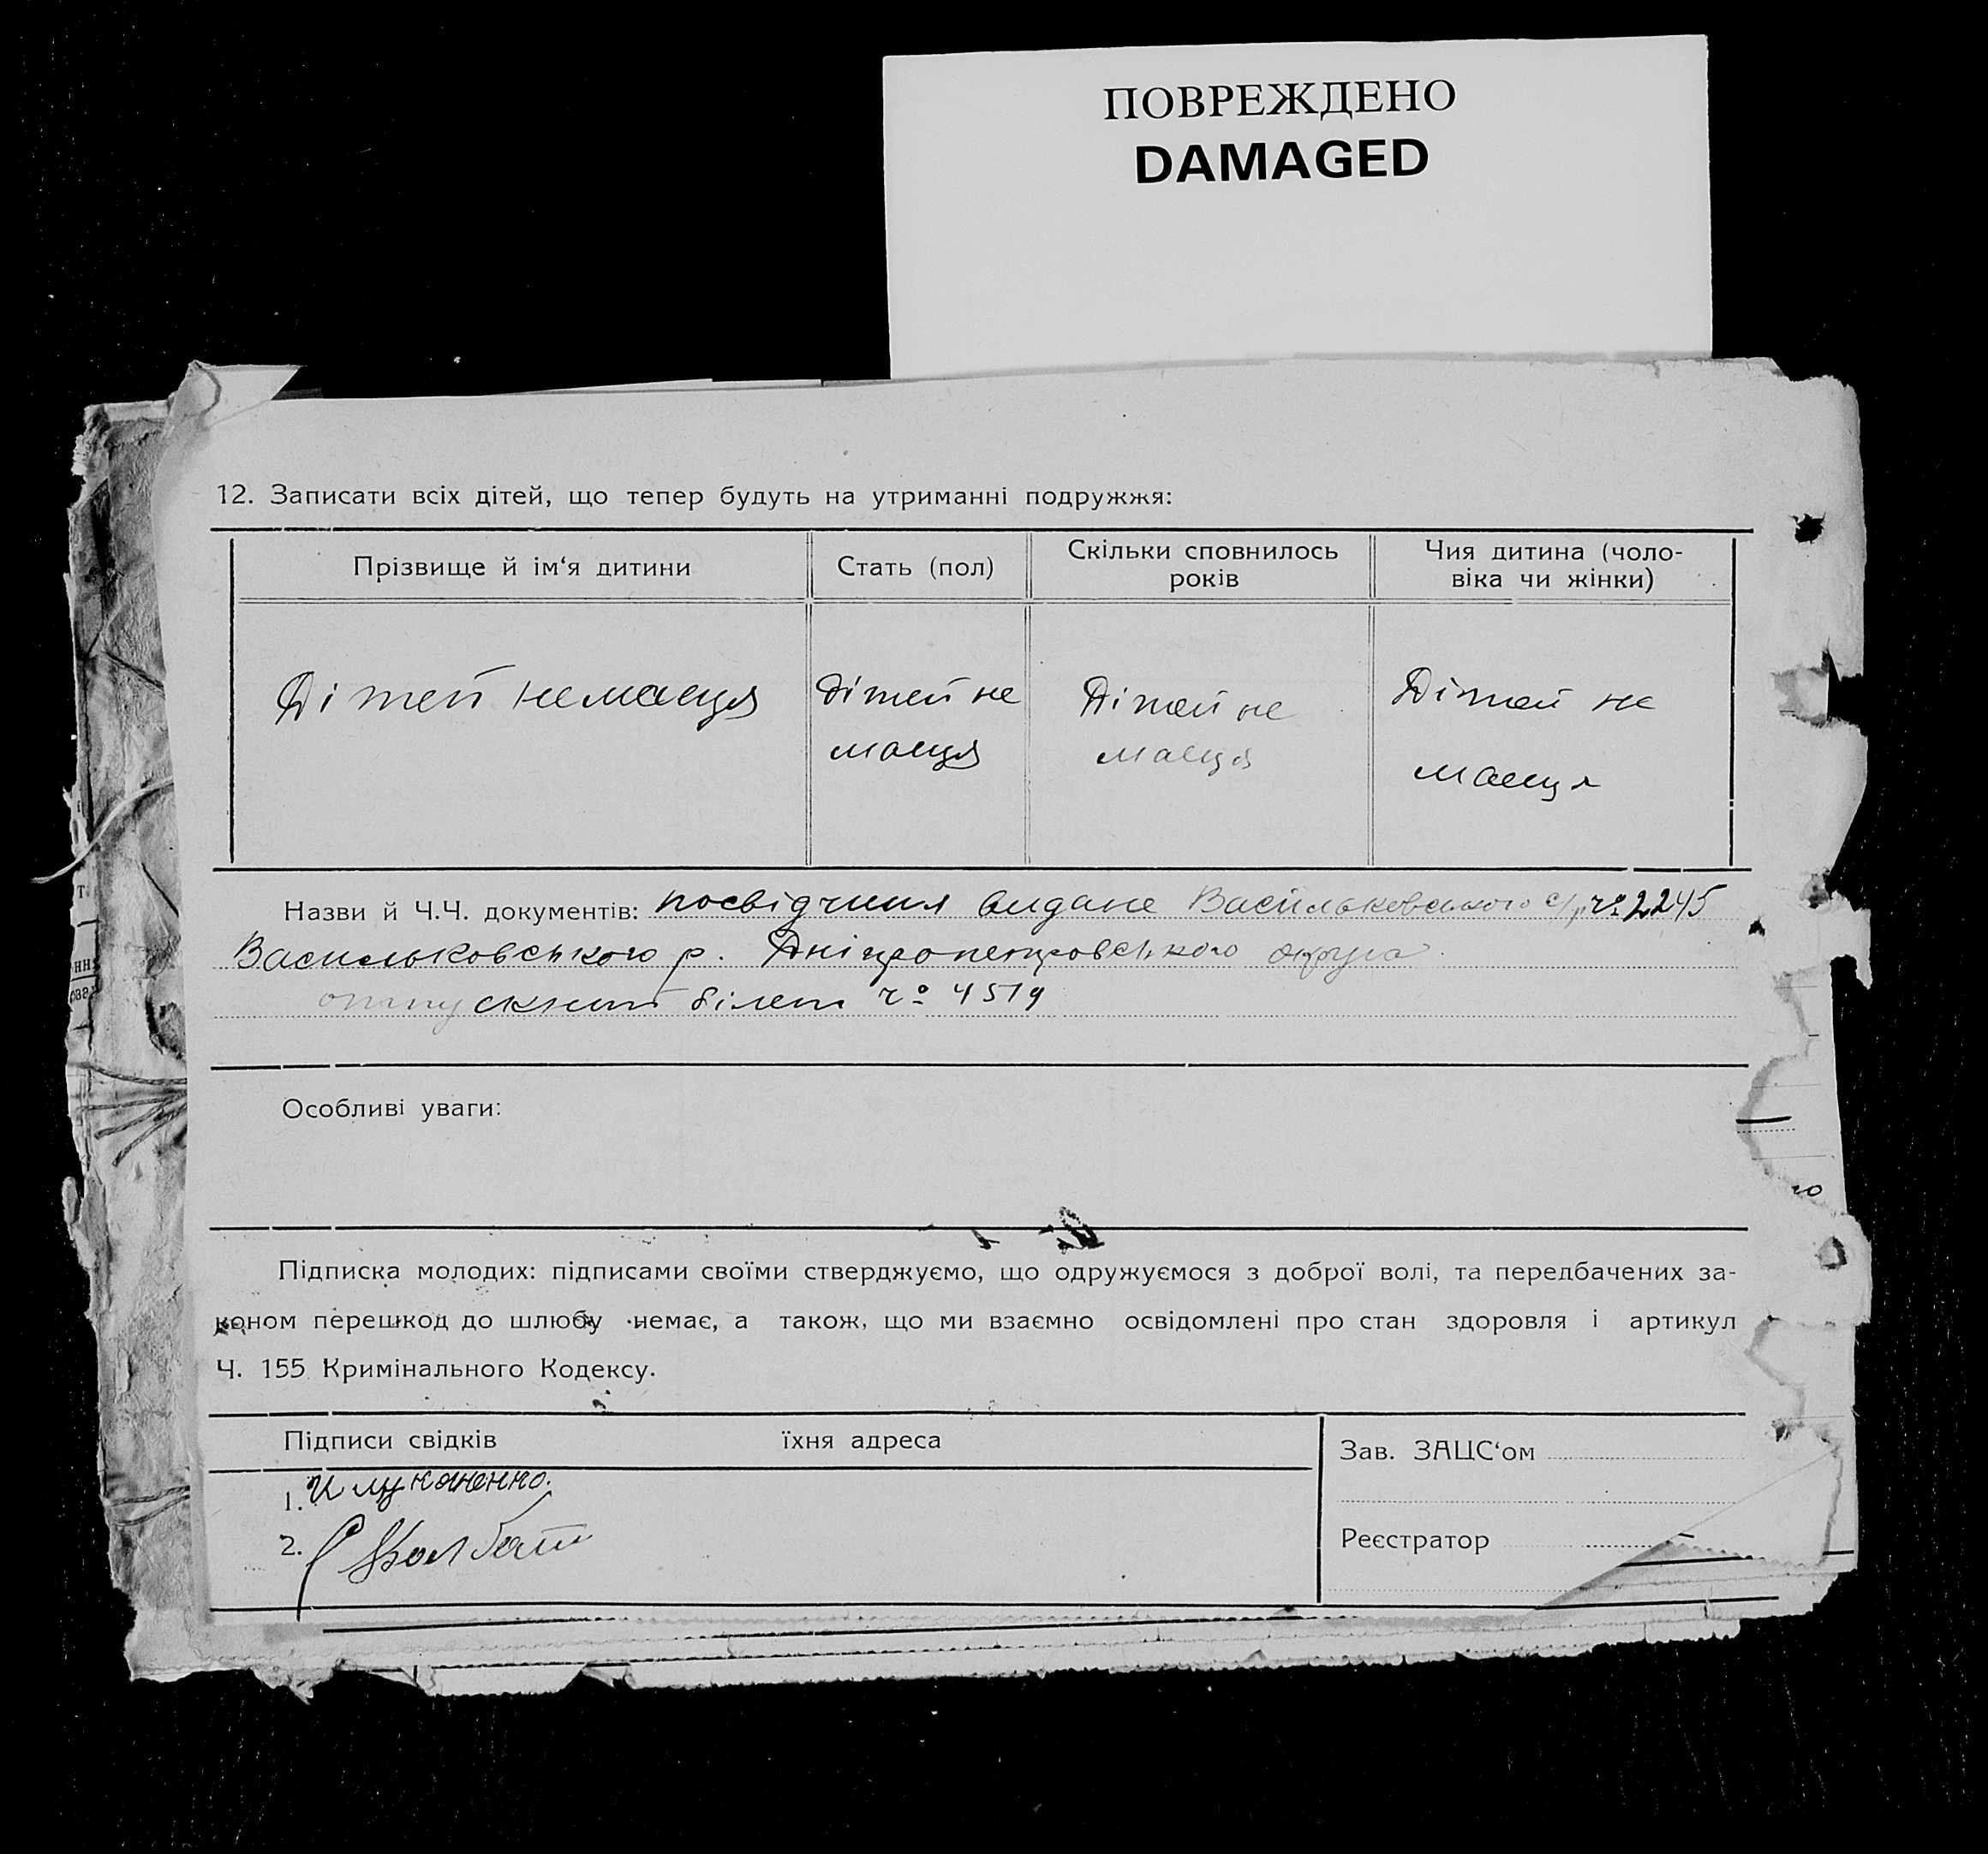 ПОВРЕЖДЕНО
DAMAGED
12. Записати всіх дітей, що тепер будуть на утриманні подружжя:
Прізвище й ім‘я дитини
Стать (пол)
Скільки сповнилось
років
Чия дитина (чоло-
віка чи жінки)
Дітей немаеця
Дітей не
маеця
Дітей не
маеця
Дітей не
маеця
Назви й Ч.Ч. документів: посвідчння видане Васильковського с/р № 2245
Васильковського р. Дніпропетровського округа
отпускний білет № 4519
Особливі уваги:
Підписка молодих: підписами своїми стверджуємо, що одружуємося з доброї волі, та передбачених за-
коном перешкод до шлюбу немає, а також, що ми взаємно освідомлені про стан здоровля і артикул
Ч. 155 Кримінального Кодексу.
Підписи свідків їхня адреса
1.
2.
Зав. ЗАЦС‘ом
Реєстратор